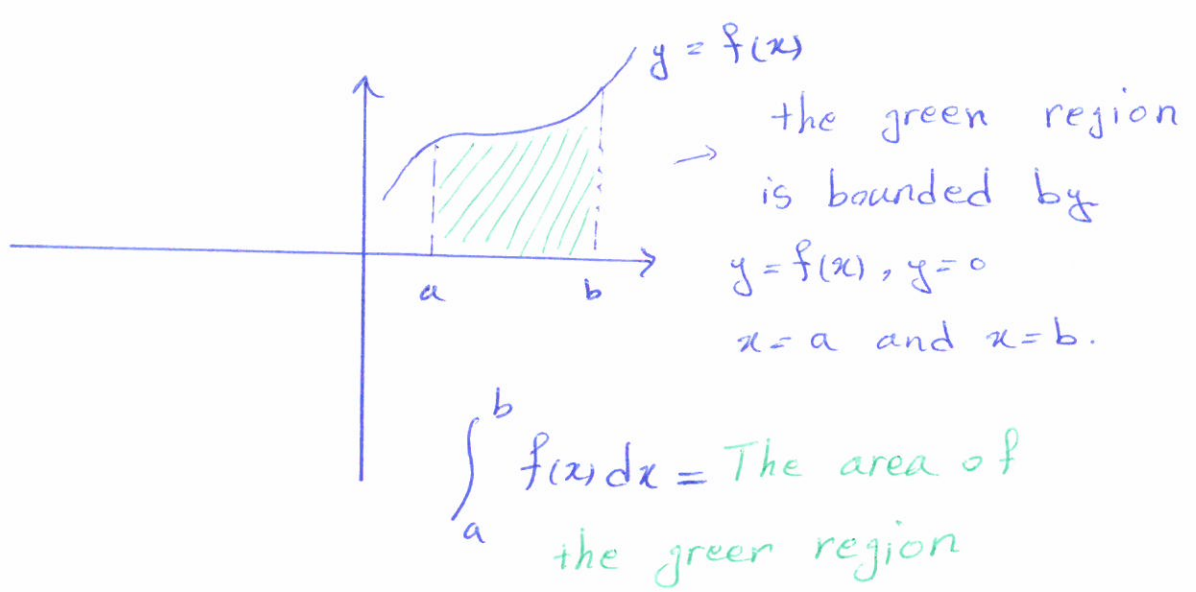 y = f(x)
the green region
→ is bounded by
y = f(x), y = 0
x = a and x = b.
a b
∫_a^b f(x) dx = The area of
the greer region